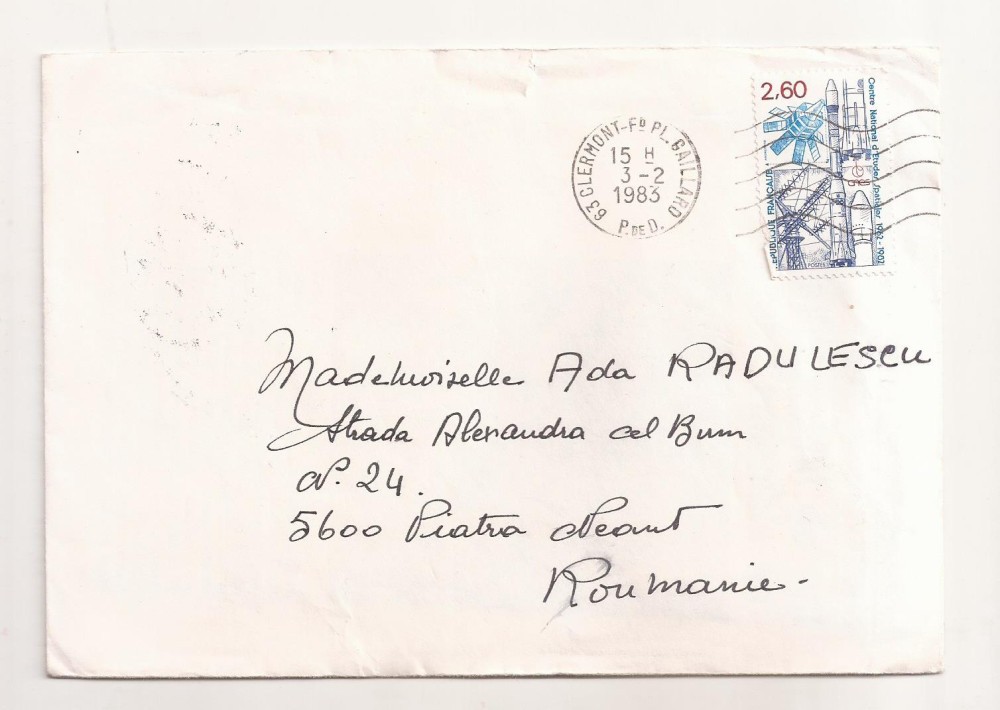 2,60
Centre National d'Etudes Spatiales 1962-1982
REPUBLIQUE FRANÇAISE
POSTES
63 CLERMONT-Fᴰ PL. GAILLARD
15 H
3-2
1983
P. DE D.
Mademoiselle Ada RADULESCU
Strada Alexandra cel Bum
N°. 24.
5600 Piatra Neant
Roumanie.-